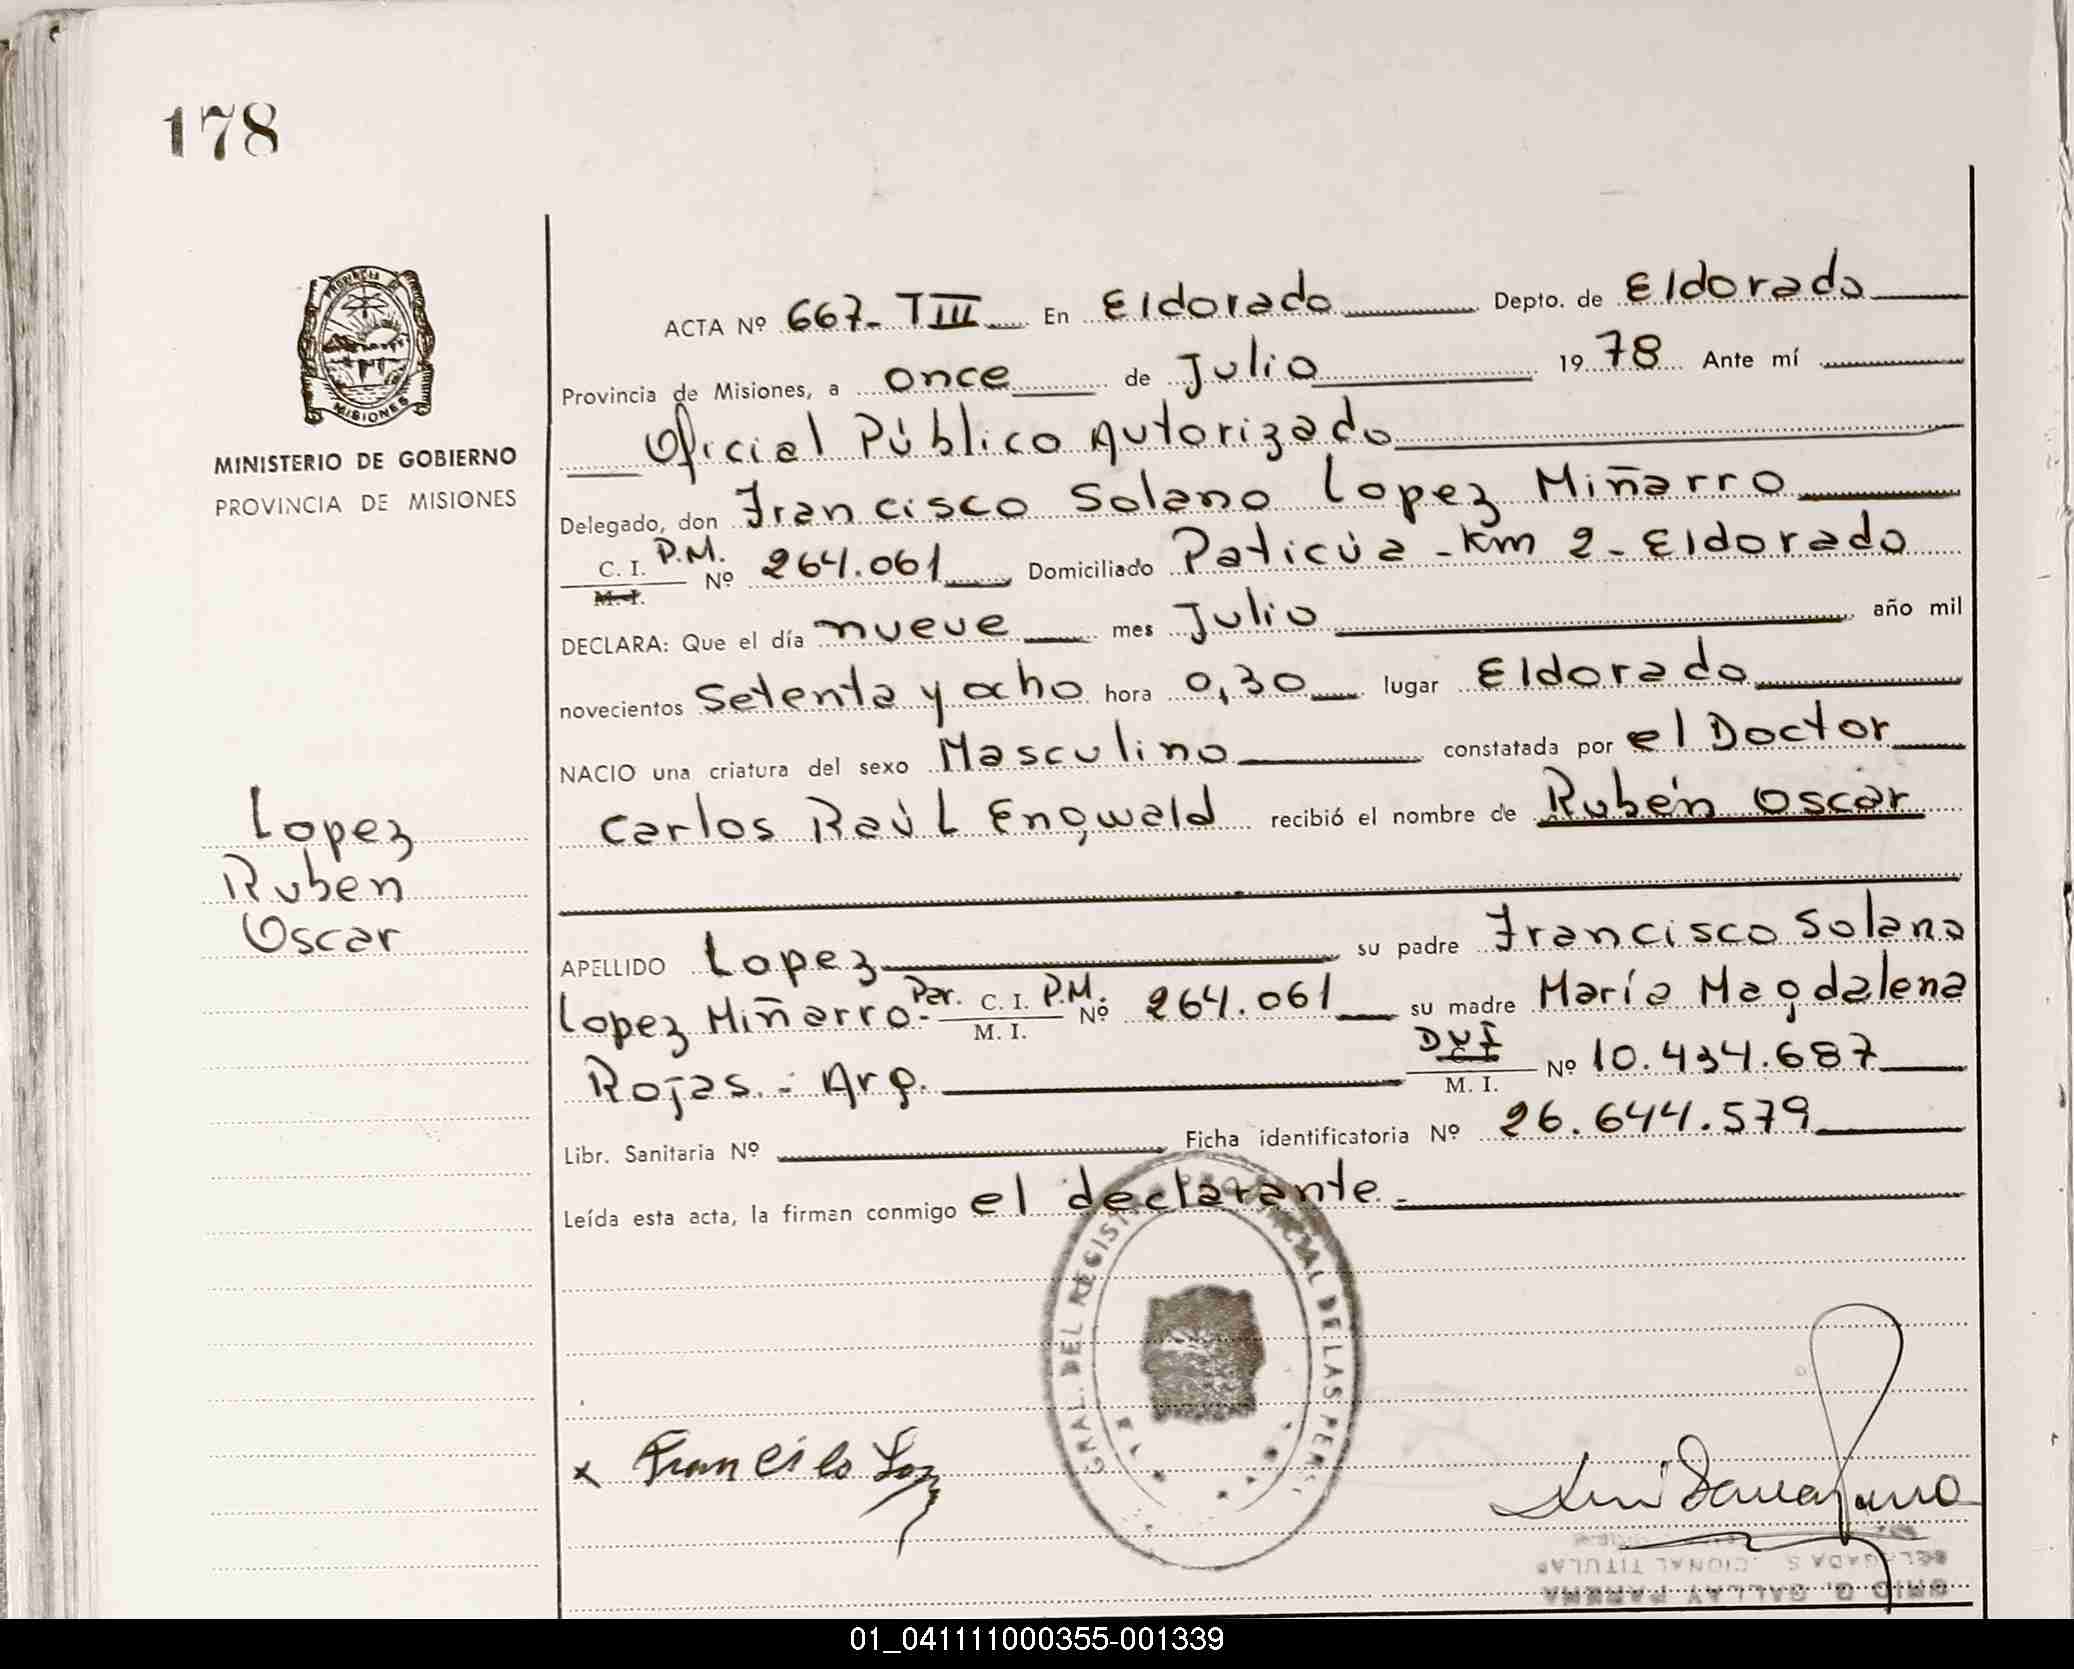 178
PROVINCIA DE
MISIONES
MINISTERIO DE GOBIERNO
PROVINCIA DE MISIONES
Lopez
Ruben
Oscar
ACTA Nº 667- TIII En Eldorado Depto. de Eldorado
Provincia de Misiones, a once de Julio 1978 Ante mí
Oficial Público Autorizado
Delegado, don Francisco Solano Lopez Miñarro
C. I. P.M. Nº 264.061 Domiciliado Paticúa - Km 2 - Eldorado
M. I.
DECLARA: Que el día nueve mes Julio año mil
novecientos setenta y ocho hora 0,30 lugar Eldorado
NACIO una criatura del sexo Masculino constatada por el Doctor
Carlos Raúl Engwald recibió el nombre de Rubén Oscar
APELLIDO Lopez su padre Francisco Solano
Lopez Miñarro.- Par. C. I. P.M. Nº 264.061 su madre María Magdalena
M. I.
Rojas.- Arg. Nº 10.434.687
M. I.
Libr. Sanitaria Nº Ficha identificatoria Nº 26.644.579
Leída esta acta, la firman conmigo el declarante.-
GRAL. DEL REGISTRO PROVINCIAL DE LAS PERS.
x Francisco Lopez
01_041111000355-001339